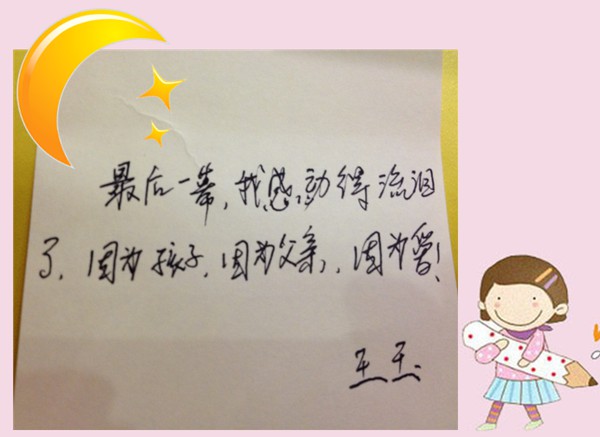 最后一幕，我感动得流泪
了，因为孩子，因为父亲，因为爱！
王玉